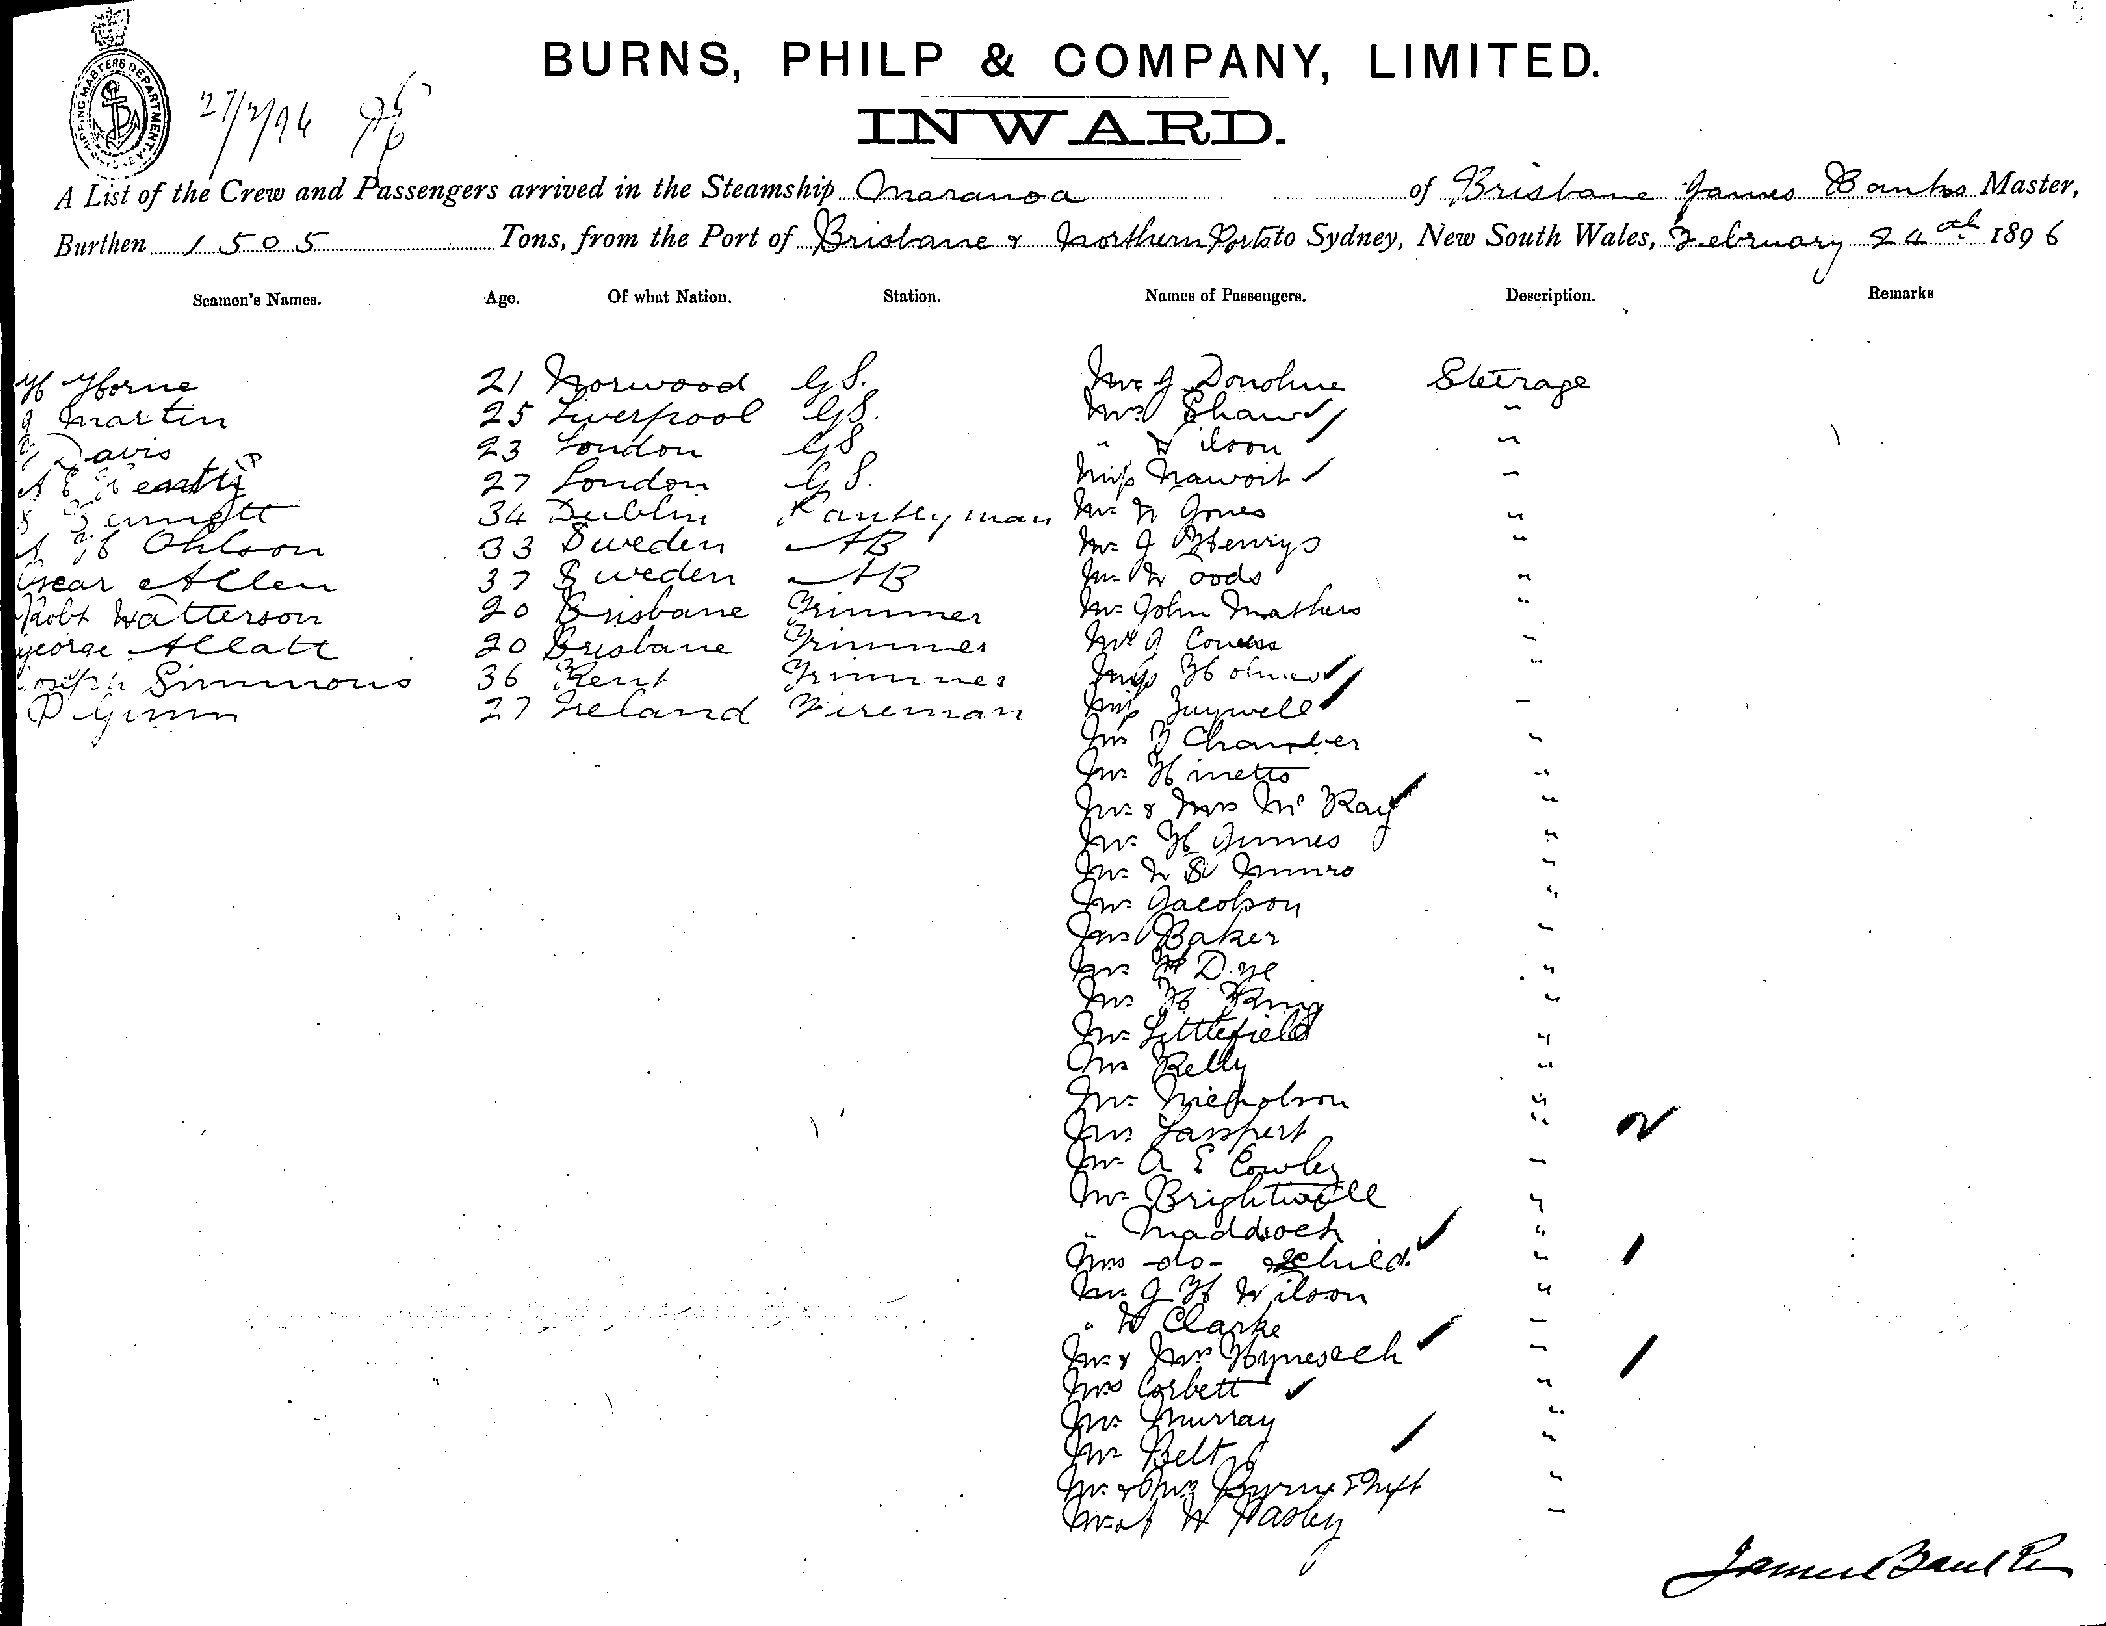 BURNS, PHILP & COMPANY, LIMITED.
INWARD.
SHIPPING MASTERS DEPARTMENT
27/2/96
A List of the Crew and Passengers arrived in the Steamship Maranoa of Brisbane James Banks Master,
Burthen 1505 Tons, from the Port of Brisbane & Northern Ports to Sydney, New South Wales, February 24th 1896
Seamen's Names. Age. Of what Nation. Station. Names of Passengers. Description. Remarks
H Horne 21 Norwood G S. Mr J Donohue Steerage
J Martin 25 Liverpool GS. Mrs Shaw ✓ "
Davis 23 London GS " Wilson ✓ "
27 London G S. Miss Nawoit ✓ "
Bennett 34 Dublin Pantryman Mr W Jones "
H Ohlson 33 Sweden AB Mr J Henrys "
Oscar Allen 37 Sweden AB Mr Woods "
Robt Watterson 20 Brisbane Trimmer Mr John Mathers "
George Allatt 20 Brisbane Trimmer Mr J Cowen "
Joseph Simmons 36 Kent Trimmer Miss Holmes ✓ "
P Ginm 27 Ireland Fireman Miss ✓ "
Mr Chamber "
Mr Hinetts "
Mr & Mrs Mc Kay ✓ "
Mr H "
Mr W Munro "
Mr Jacobson "
Mr Baker "
Mr Dye "
Mr H King "
Mr Littlefield "
Mr Kelly "
Mr Nicholson "
Mr " 2
Mr A E Cowley "
Mr Brightwell "
" Maddock "
Mrs -do- & child ✓ " 1
Mr J H Wilson "
" W Clarke "
Mr & Mrs ✓ " 1
Mrs Corbett ✓ "
Mr Murray "
Mr Belt "
Mr & Mrs Byrne & Inft ✓ "
W Pasley "
James Banks